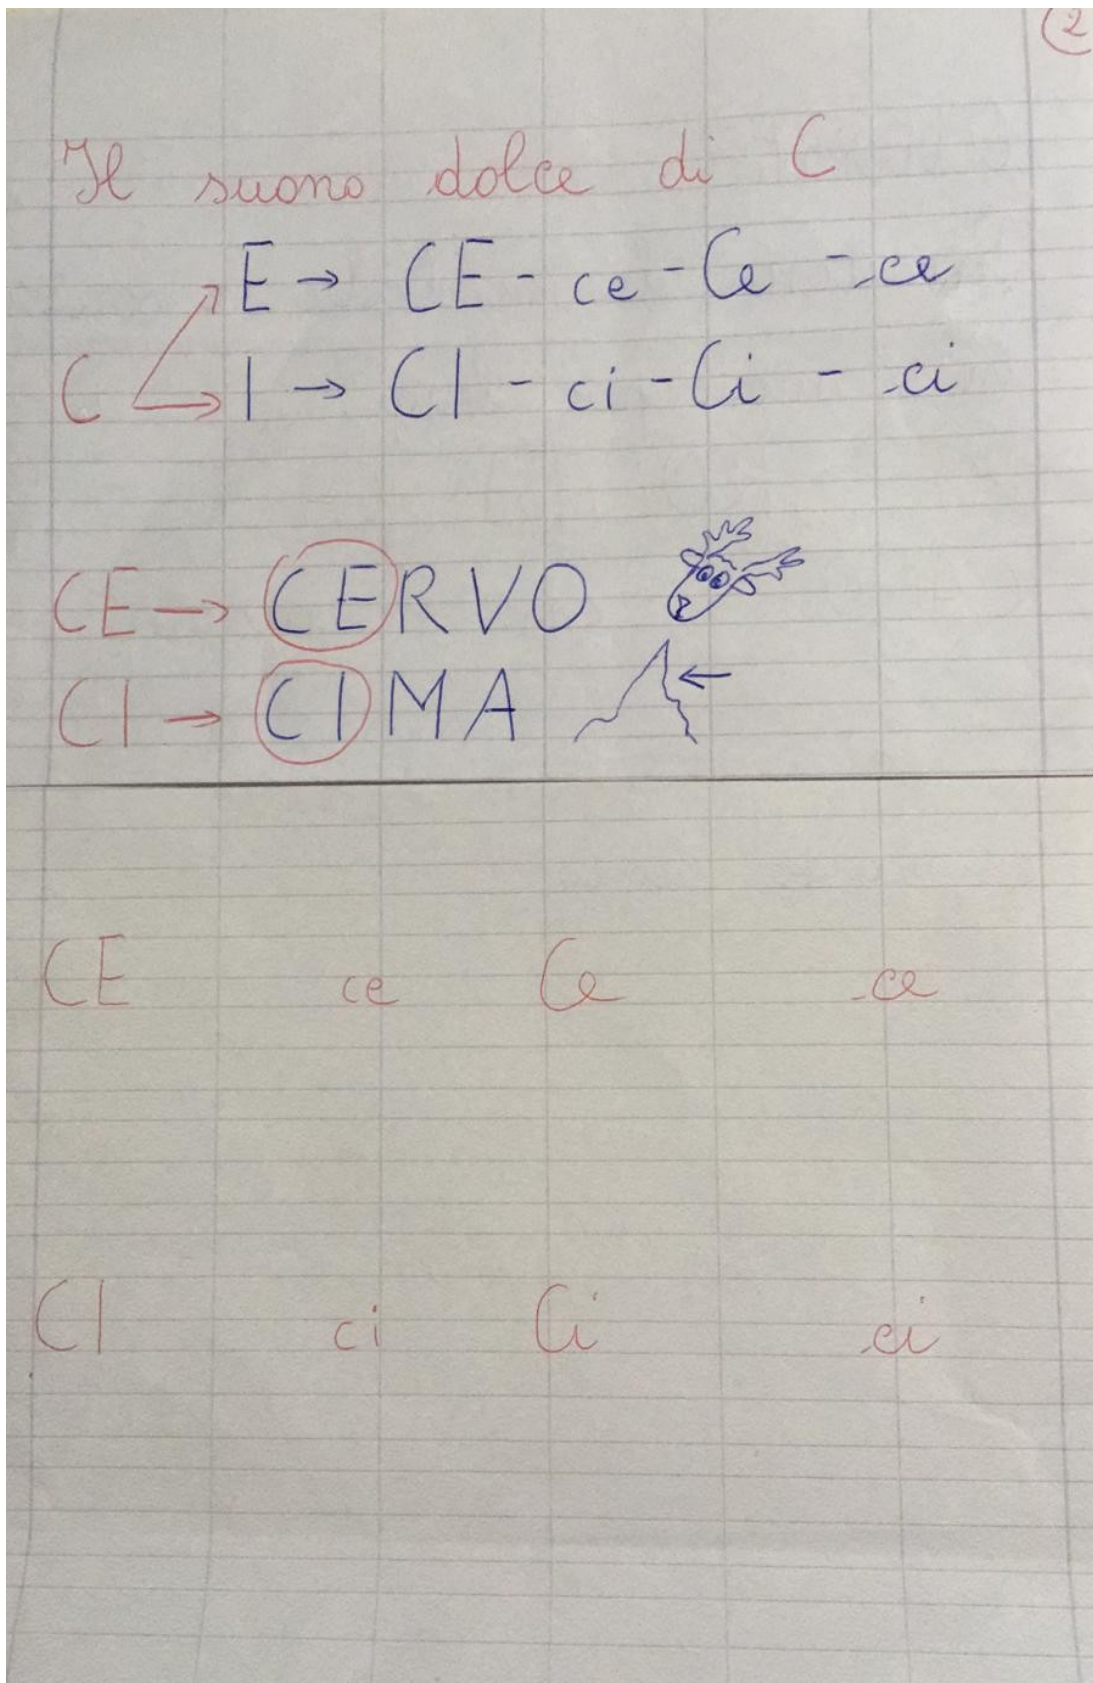 2
Il suono dolce di C
E → CE - ce - Ce - ce
C → I → CI - ci - Ci - ci
CE → CERVO
CI → CIMA
CE ce Ce ce
CI ci Ci ci